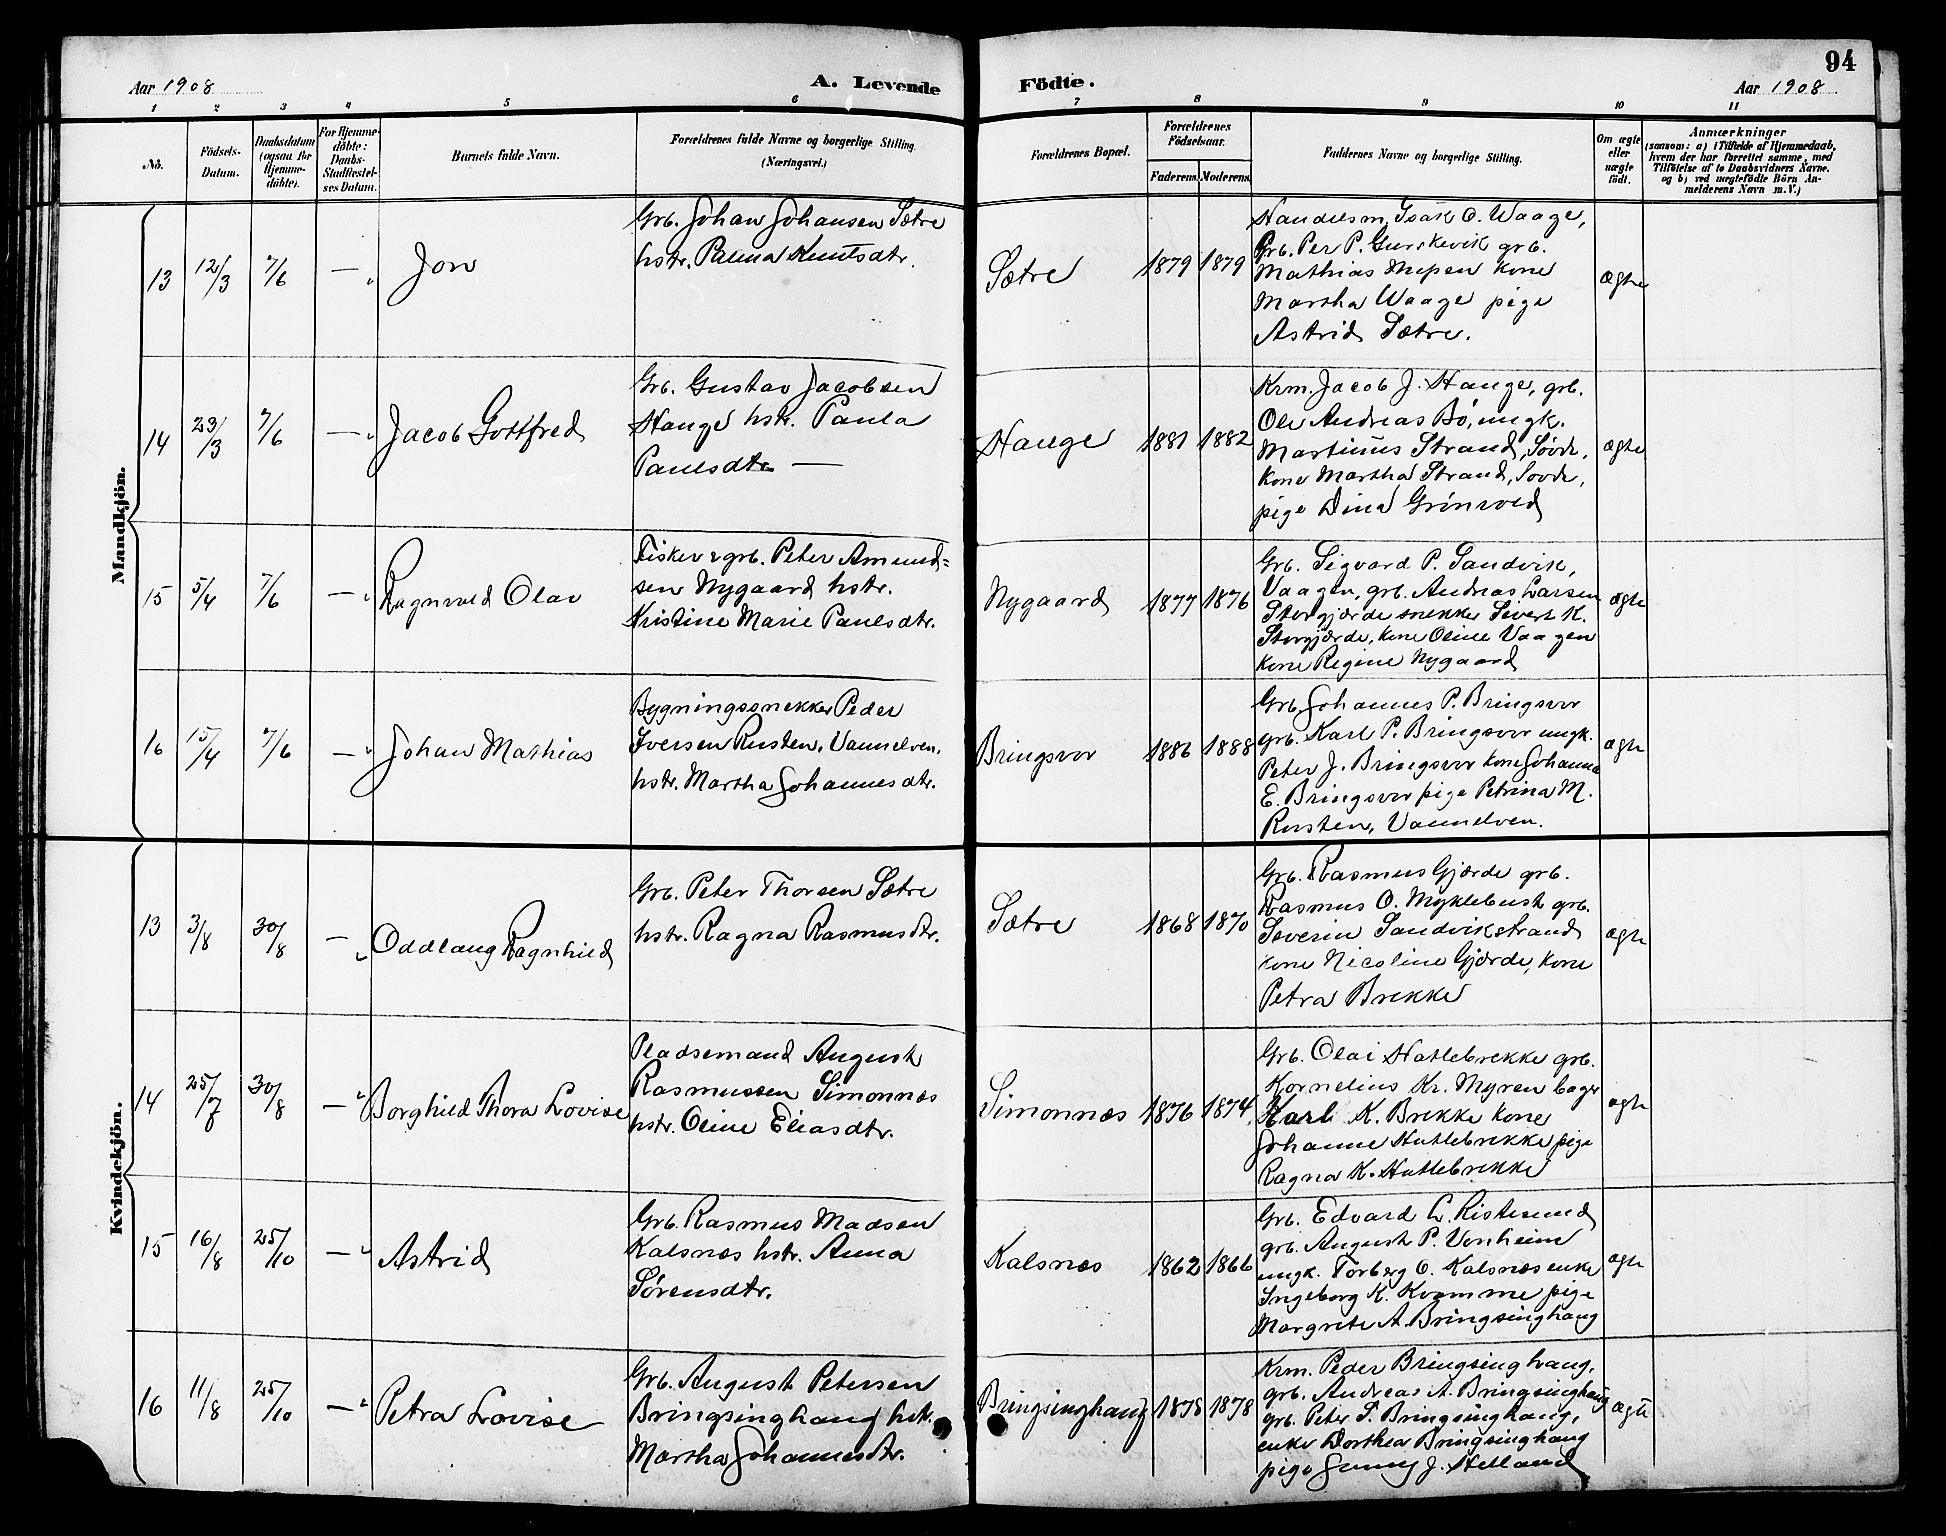 94
Aar 1908
A. Levende
Födte.
Aar 1908
1 2 3 4 5 6 7 8 9 10 11
No.
Födsels-
Datum.
Daabsdatum
(ogsaa for
Hjemme-
döbte).
For Hjemme-
döbte:
Daabs-
Stadfæstel-
ses Datum.
Barnets fulde Navn.
Forældrenes fulde Navne og borgerlige Stilling.
(Næringsvei.)
Forældrenes Bopæl.
Forældrenes
Födselsaar.
Faderens. Moderens.
Faddernes Navne og borgerlige Stilling.
Om ægte
eller
uægte
födt.
Anmærkninger
(saasom: a) i Tilfælde af Hjemmedaab,
hvem der har forrettet samme, med
Tilföielse af to Daabsvidners Navne,
og b) ved uægtefödte Börn An-
melderens Navn m. V.)
Mandkjön.
13 12/3 7/6 — " Jon
Grb. Johan Johansen Sætre
hstr. Paulina Knutsdtr.
Sætre 1879 1879
Handelsm. Isak O. Waage,
Grb. Per P. Gurskevik grb.
Mathias Mepen kone
Martha Waage pige
Astrid Sætre.
ægte
14 23/3 7/6 — " Jacob Gottfred
Grb. Gustav Jacobsen
Hauge hstr. Paula
Paulsdtr —
Hauge 1881 1882
Krm. Jacob J. Hauge, grb.
Ole Andreas Bö, ungk.
Martinus Strand, Sövde,
kone Martha Strand, Sovde,
pige Dina Grönvold
ægte
15 5/4 7/6 — " Ragnvald Olav
Fisker & grb. Peter Amund=
sen Nygaard hstr.
Kristine Marie Paulsdtr.
Nygaard 1877 1876
Grb. Sigvard P. Sandvik,
Vaagen, grb. Andreas Larsen
Storgjærde snekker Sivert K.
Storgjærde, kone Oline Vaagen
kone Regine Nygaard
ægte
16 15/4 7/6 — " Johan Mathias
Bygningssnekker Peder
Iversen Rusten, Vannelven,
hstr. Martha Johannesdtr.
Bringsvor 1886 1888
Grb. Johannes P. Bringsvor
grb. Karl P. Bringsvor ungk.
Peter J. Bringsvor kone Johanna
E. Bringsvor pige Petrina M.
Rusten, Vannelven.
ægte
Kvindekjön.
13 3/8 30/8 — " Oddlaug Ragnhild
Grb. Peter Thorsen Sætre
hstr. Ragna Rasmusdtr.
Sætre 1868 1870
Grb. Rasmus Gjærde grb.
Rasmus O. Myklebust grb.
Severin Sandvikstrand
kone Nicoline Gjærde, kone
Petra Brekke
ægte
14 25/7 30/8 — " Borghild Thora Lovise
Pladsemand August
Rasmussen Simonnæs
hstr. Oline Eliasdtr.
Simonnæs 1876 1874
Grb. Olai Hatlebrekke grb.
Kornelius Kr. Myren bager
Karl K. Brekke kone
Johanne Hatlebrekke pige
Ragna K. Hatlebrekke
ægte
15 16/8 25/10 — " Astrid
Grb. Rasmus Madsen
Kalsnæs hstr. Anna
Sörensdtr.
Kalsnæs 1862 1866
Grb. Edvard L. Ristesund
grb. August P. Vonheim
ungk. Torberg O. Kalsnæs enke
Ingeborg K. Kvamme pige
Margrete A. Bringsinghaug
ægte
16 11/8 25/10 — " Petra Lovise
Grb. August Petersen
Bringsinghaug hstr.
Martha Johannesdtr.
Bringsinghaug 1878 1878
Krm. Peder Bringsinghaug,
grb. Andreas A. Bringsinghaug
grb. Peter S. Bringsinghaug,
enke Dorthea Bringsinghaug
pige J. Helland
ægte